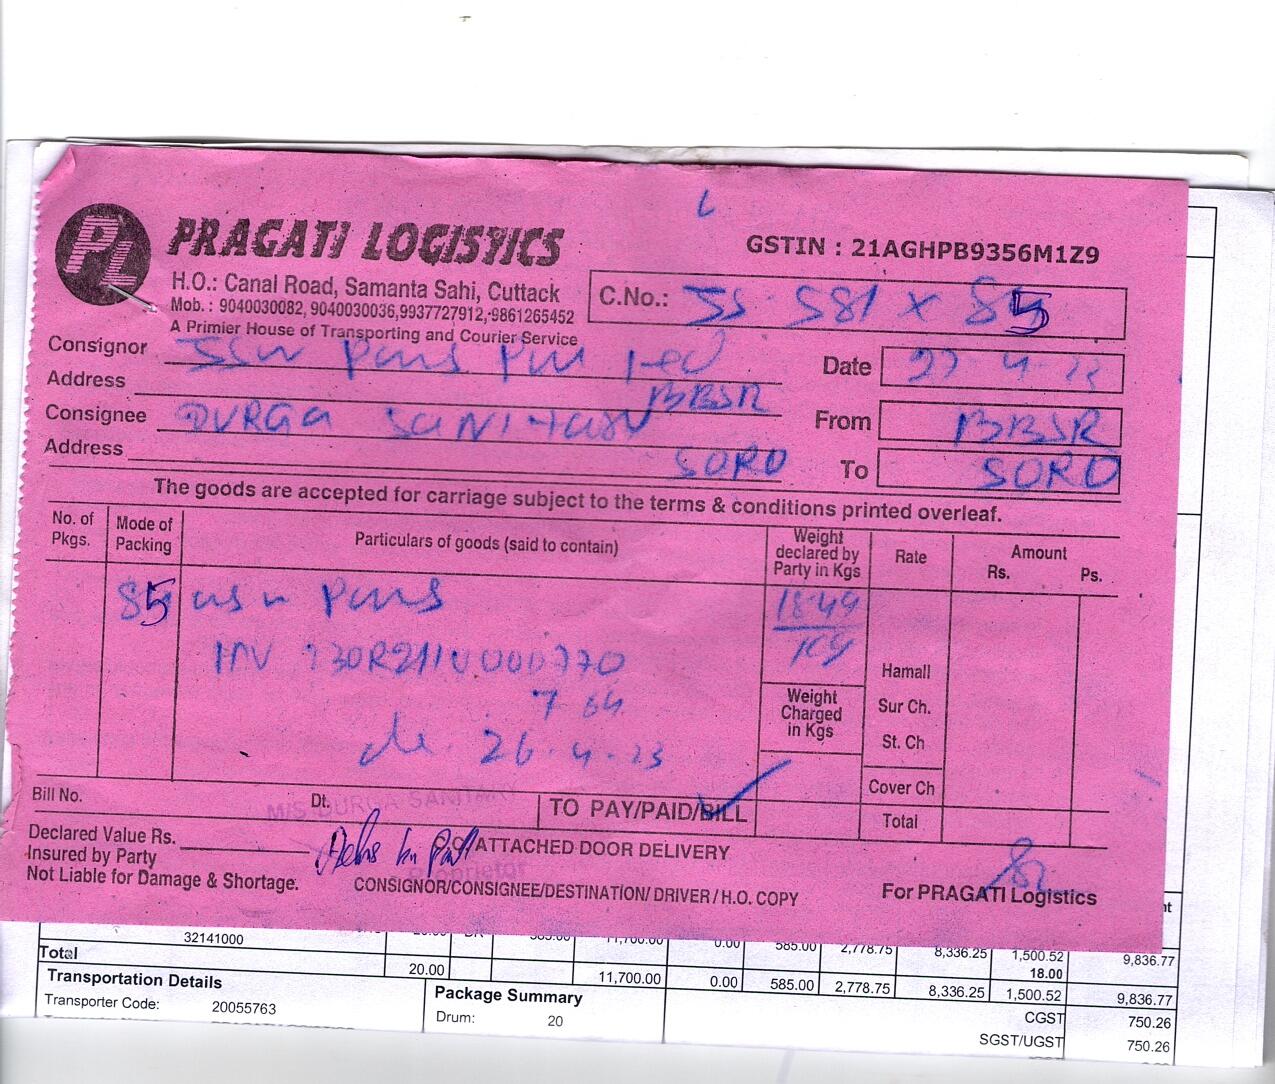 PL PRAGATI LOGISTICS
GSTIN : 21AGHPB9356M1Z9
H.O.: Canal Road, Samanta Sahi, Cuttack
Mob. : 9040030082, 9040030036,9937727912, 9861265452
A Primier House of Transporting and Courier Service
C.No.: SS 581 x 85
Consignor
Date 27 4 23
Address BBSR
Consignee DURGA
From BBSR
Address SORO
To SORO
The goods are accepted for carriage subject to the terms & conditions printed overleaf.
No. of Pkgs.
Mode of Packing
Particulars of goods (said to contain)
Weight declared by Party in Kgs
Rate
Amount
Rs. Ps.
85
1849
Kg
INV
764
26.4.23
Weight Charged in Kgs
Hamall
Sur Ch.
St. Ch
Cover Ch
Total
Bill No. Dt.
M/S DURGA SANITARY
TO PAY/PAID/BILL
Declared Value Rs.
Insured by Party
Not Liable for Damage & Shortage.
ATTACHED DOOR DELIVERY
Proprietor
CONSIGNOR/CONSIGNEE/DESTINATION/ DRIVER / H.O. COPY
For PRAGATI Logistics
32141000 585.00 11,700.00 0.00 585.00 2,778.75 8,336.25 1,500.52 9,836.77
18.00
Total 20.00 11,700.00 0.00 585.00 2,778.75 8,336.25 1,500.52 9,836.77
Transportation Details
Package Summary
CGST 750.26
Transporter Code: 20055763
Drum: 20
SGST/UGST 750.26